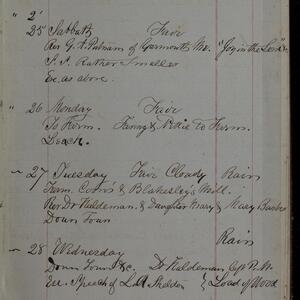 " 2'
25 Sabbath Fair
Rev G. A. Putnam of Yarmouth Me. "Joy in the Lord"
S. S. Rather Smaller
Eve. as above.
" 26 Monday Fair
To Farm. Fanny & Nettie to Farm.
Leach.
" 27 Tuesday Fair Cloudy Rain
Farm. Corn's & Blakesley's Mill.
Rev Dr Haldeman & Daughter Mary & Mary
Down Town
Rain
" 28 Wednesday
Down Town &c. Dr Haldeman
Eve Speech of L. A. Sheldon & Load of Wood